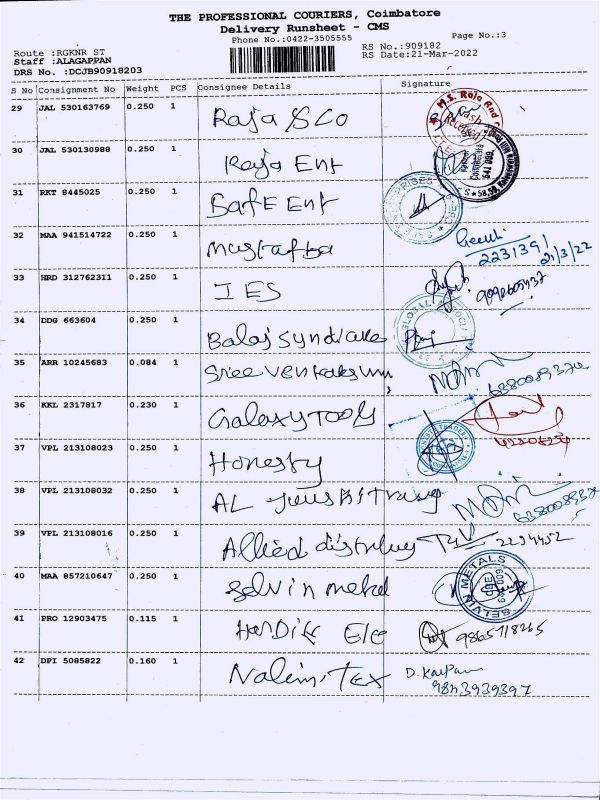 THE PROFESSIONAL COURIERS, Coimbatore
Delivery Runsheet - CMS
Phone No.:0422-3505555
Page No.:3
Route :RGKNR ST
RS No.:909182
Staff :ALAGAPPAN
RS Date:21-Mar-2022
DRS No. :DCJB90918203
S No Consignment No Weight PCS Consignee Details Signature
29 JAL 530163769 0.250 1 Raja & Co
30 JAL 530130988 0.250 1 Raja Ent
31 RKT 8445025 0.250 1 Safe Ent
32 MAA 941514722 0.250 1 Mustaffa 2231391 21/3/22
33 HRD 312762311 0.250 1 IES
34 DDG 663604 0.250 1 Balaj Syndicate
35 ARR 10245683 0.084 1 Sree
36 KKL 2317817 0.230 1 Galaxy Tools
37 VPL 213108023 0.250 1 Honesty
38 VPL 213108032 0.250 1 AL
39 VPL 213108016 0.250 1 Allied 2294452
40 MAA 857210647 0.250 1 Selvin metal SELVIN METALS
41 PRO 12903475 0.115 1 Hardik 9865718265
42 DPI 5085822 0.160 1 Nalini Tex D. Karpan
9843939397